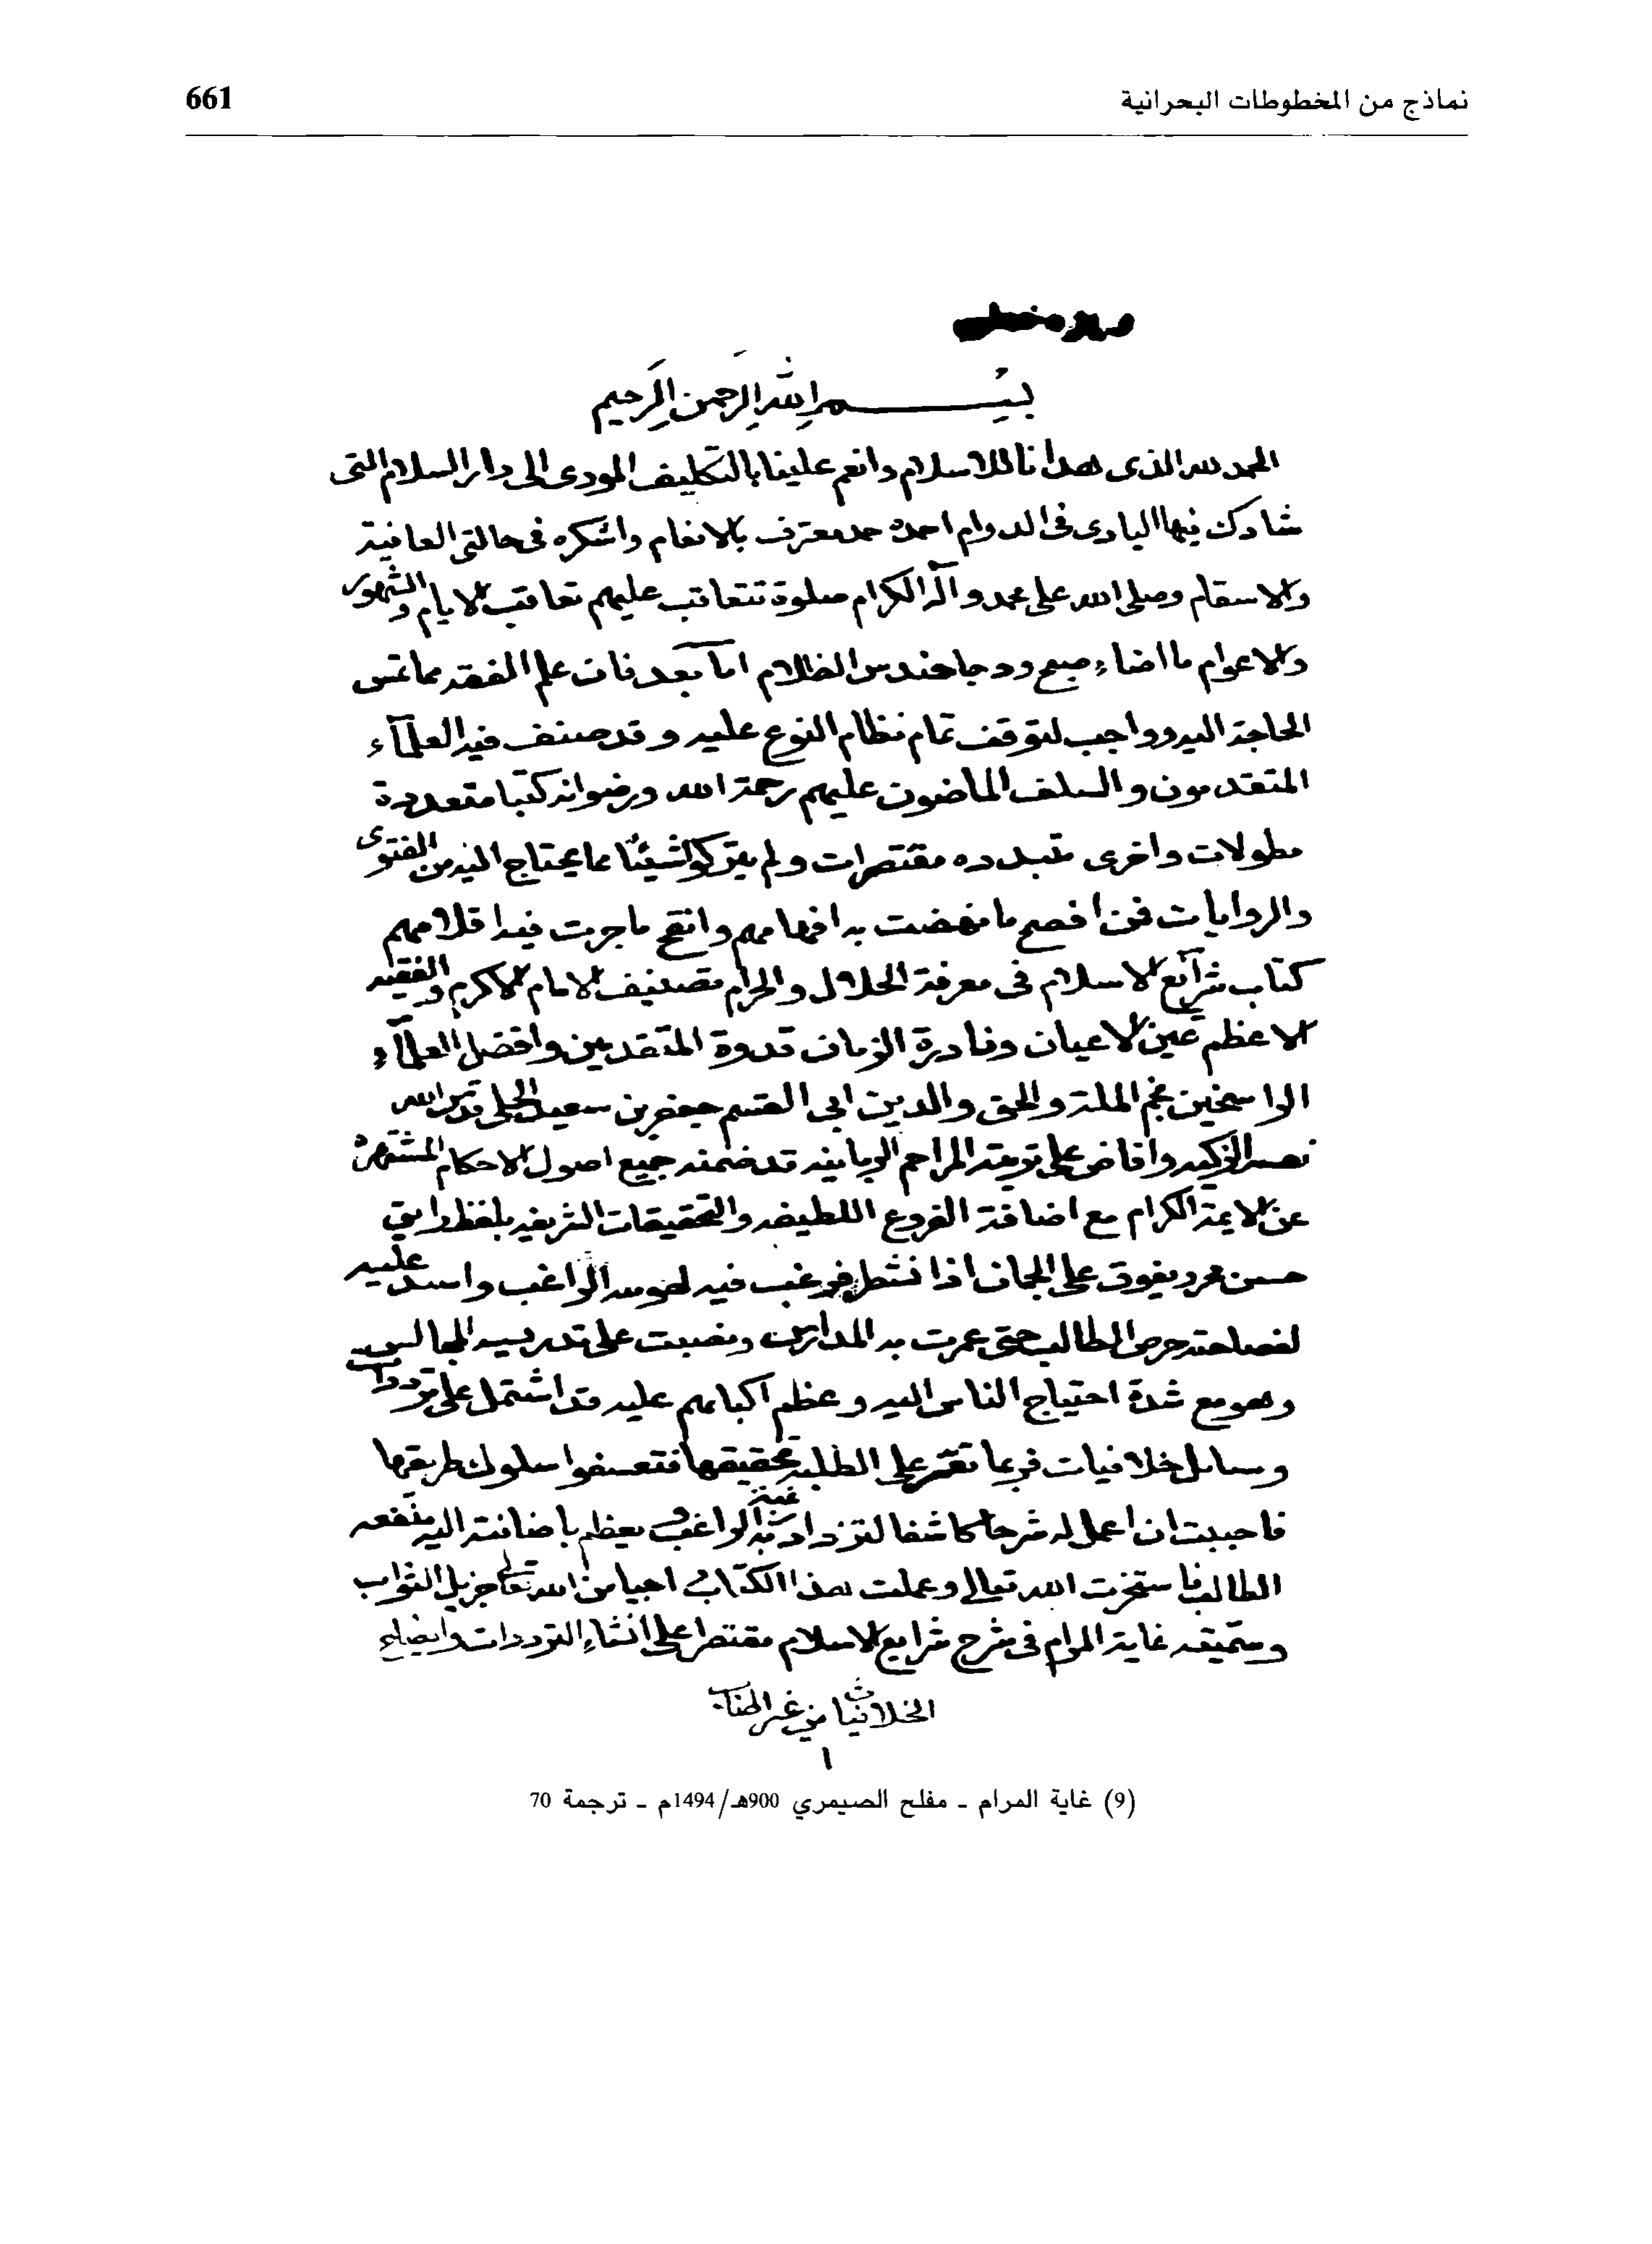 نماذج من المخطوطات البحرانية
661
بسم الله الرحمن الرحيم
الحمد لله الذى هدانا للاسلام وانعم علينا بالتكليف المودى الى دار السلام التى
شارك فيها البارى فى الدوام احمده حمد معترف بالانعام واشكره فى حالتى العافية
والاسقام وصلى الله على محمد وآله الكرام صلوة تتعاقب عليهم تعاقب الايام والشهور
والاعوام ما اضاء صبح ودجا حندس الظلام اما بعد فان علم الفقه مما تمس
الحاجة اليه وواجب لتوقف تمام نظام النوع عليه وقد صنف فيه العلمآء
المتقدمون والسلف الماضون عليهم رحمة الله ورضوانه كتبا متعددة
مطولات واخرى مختصرات ولم يتركوا شيئا مما يحتاج اليه من الفتوى
والروايات فمن افصح ما نهضت به افهامهم وانقح ماجرت فيه اقلامهم
كتاب شرآئع الاسلام فى معرفة الحلال والحرام تصنيف الامام الاكرم والفقيه
الاعظم عين الاعيان ونادرة الزمان قدوة المتقدمين وافضل العلمآء
الراسخين نجم الملة والحق والدين ابى القسم جعفر بن سعيد الحلى قدس الله
نفسه الزكيه وافاض على تربته المراحم الربانيه قد ضمنه جميع اصول الاحكام المشتهرة
عن الايمة الكرام مع اضافة الفروع اللطيفه والتحقيقات الشريفه بلفظ رايق
حسن يفوق على الجمان اذا نظم فرغب فيه الراغب واسند عليه
لفصاحته حرص الطالب حتى عمرت به المدارس ونصبت على تدريسه المجالس
وهو مع شدة احتياج الناس اليه وعظم اكبابهم عليه قد اشتمل على ترددات
ومسايل خلافيات فربما تعسر على الطلبة تحقيقها فتعسفوا سلوك طريقها
فاحببت ان اعمل له شرحا كاشفا لتزداد به رغبة الراغب ويعظم باضافته اليه منفعه
الطالب فاستخرت الله تعالى وعملت هذا الكتاب من الله تعالى جزيل الثواب
وسميته غاية المرام فى شرح شرايع الاسلام مقتصرا على انشاء الترددات وايضاح
الخلافيات من غير
١
(9) غاية المرام - مفلح الصيمري 900هـ/1494م - ترجمة 70